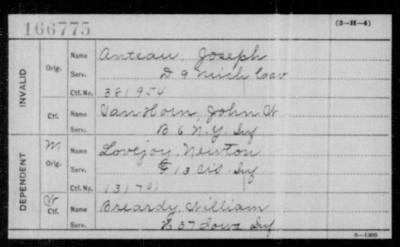 166775
(3-H-4)
INVALID
Orig. Name Anteau, Joseph
Serv. D 9 Mich Cav
Ctf. No. 381954
Ctf. Name Van Horn, John W
Serv. B 6 N.Y. Inf
DEPENDENT
M Orig. Name Lovejoy, Newton
Serv. G 13 Wis. Inf
Ctf. No. 1317
W Ctf. Name Breardy, William
Serv. 37 Iowa Inf
6-1366